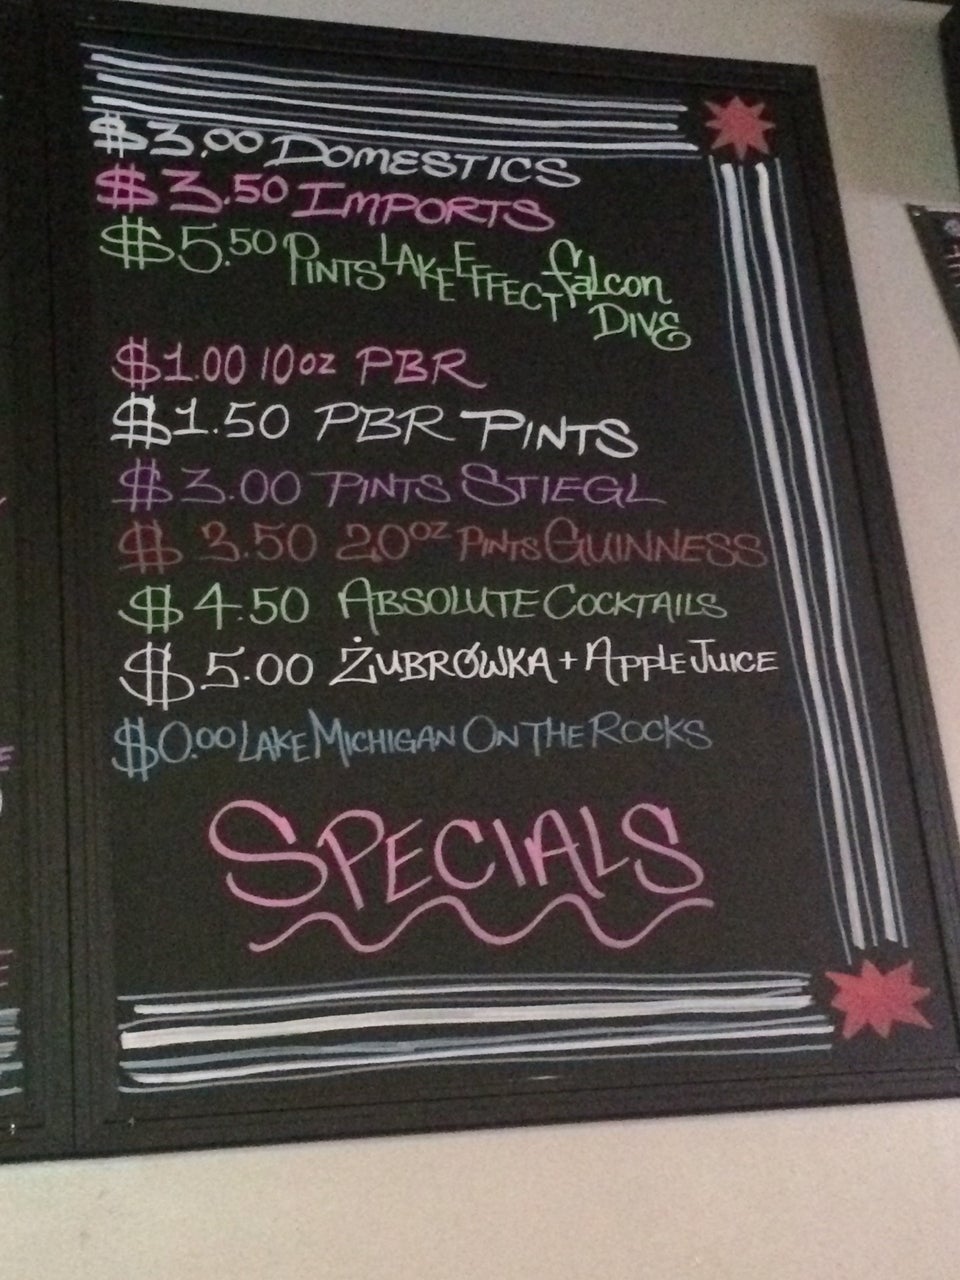 $3.00 DOMESTICS
$3.50 IMPORTS
$5.50 PINTS LAKE EFFECT falcon
DIVE
$1.00 10oz PBR
$1.50 PBR PINTS
$3.00 PINTS STIEGL
$3.50 20oz PINTS GUINNESS
$4.50 ABSOLUTE COCKTAILS
$5.00 ŻUBRÓWKA + APPLE JUICE
$0.00 LAKE MICHIGAN ON THE ROCKS
SPECIALS